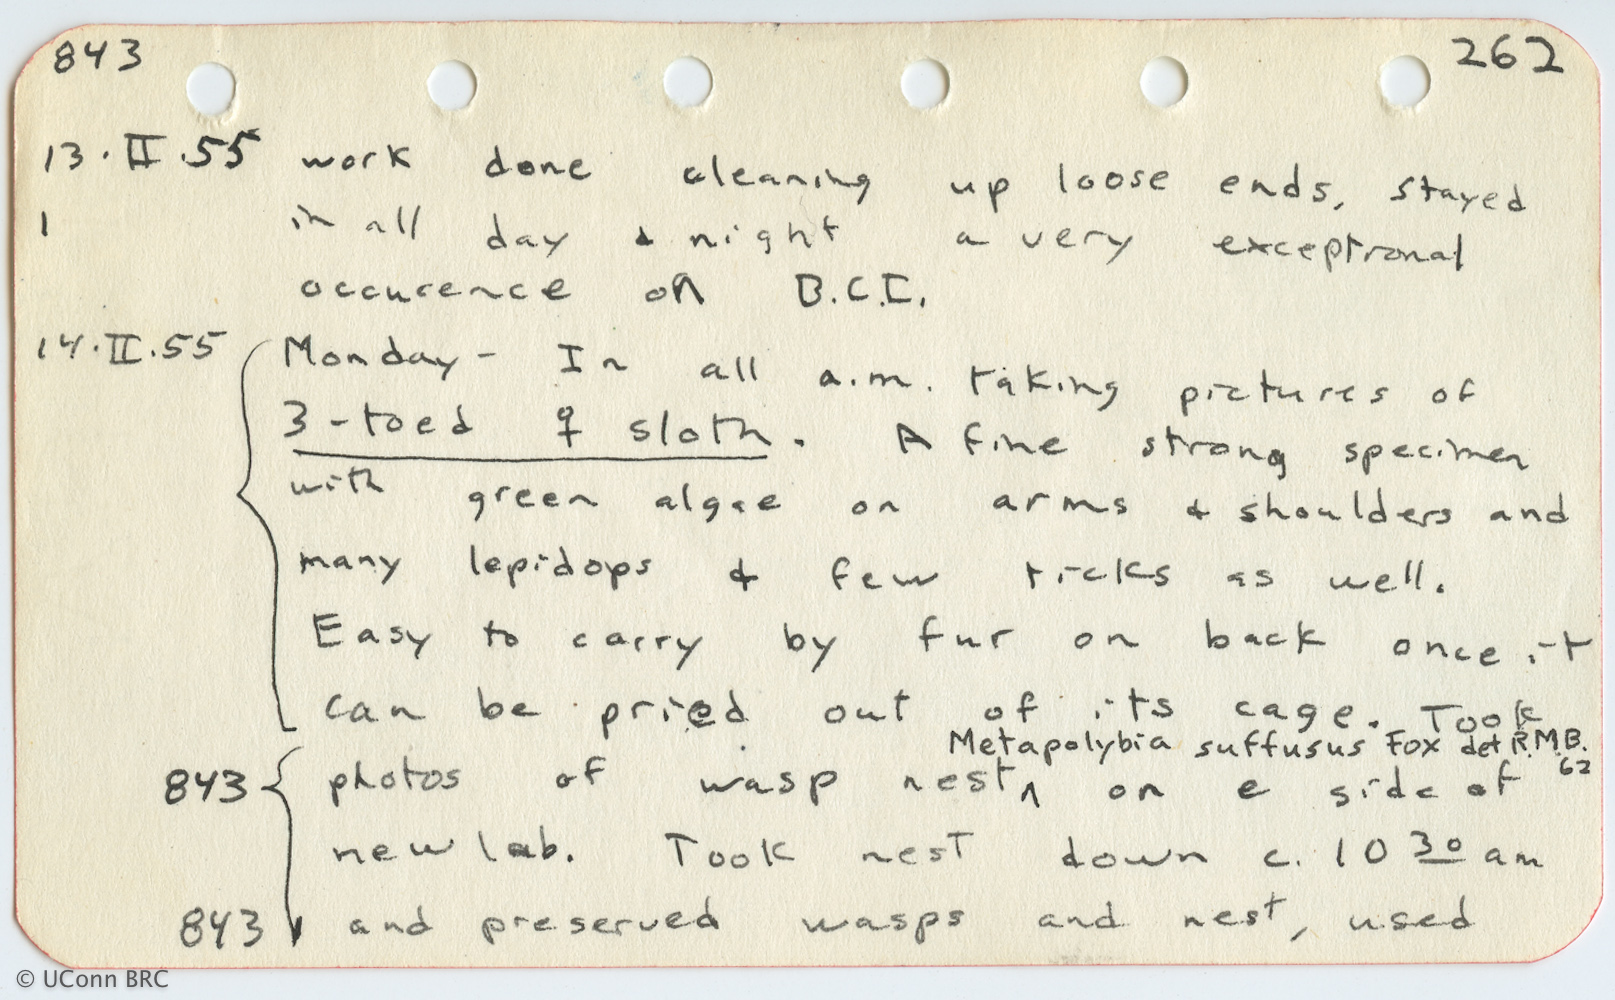 843 262
13.II.55 work done cleaning up loose ends, stayed
1 in all day & night a very exceptional
occurence on B.C.I.
14.II.55 Monday- In all a.m. taking pictures of
3-toed ♀ sloth. A fine strong specimen
with green algae on arms & shoulders and
many lepidops & few ticks as well.
Easy to carry by fur on back once it
can be pried out of its cage. Took
Metapolybia suffusus Fox det R.M.B. 62
843 photos of wasp nest ^ on e side of
new lab. Took nest down c. 10 30 am
843 and preserved wasps and nest, used
© UConn BRC